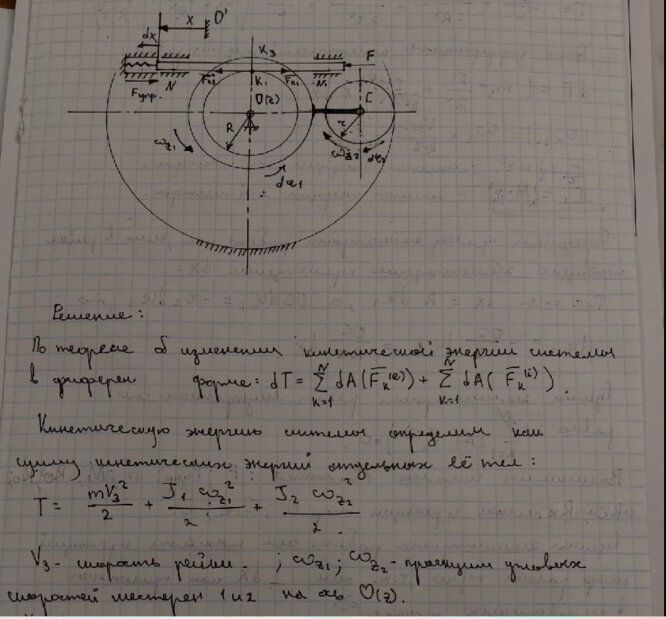 x
O'
dx
K₃
F
N
F̅к₃
K₁
F̅к₁
N₁
Fупр.
O(z)
C
R
r
ω_z₁
ω_z₂
dφ₂
dφ₁
Решение:
По теореме об изменении кинетической энергии системы
в диферен форме: dT = ∑_{k=1}^{N} dA(F̅ₖ⁽ᵉ⁾) + ∑_{k=1}^{N} dA(F̅ₖ⁽ⁱ⁾).
Кинетическую энергию системы определим как
сумму кинетических энергий отдельных её тел:
T = mV₃²/2 + J₁ω_z₁²/2 + J₂ω_z₂²/2.
V₃ - скорость рейки. ; ω_z₁; ω_z₂ - проекции угловых
скоростей шестерен 1 и 2 на ось O(z).